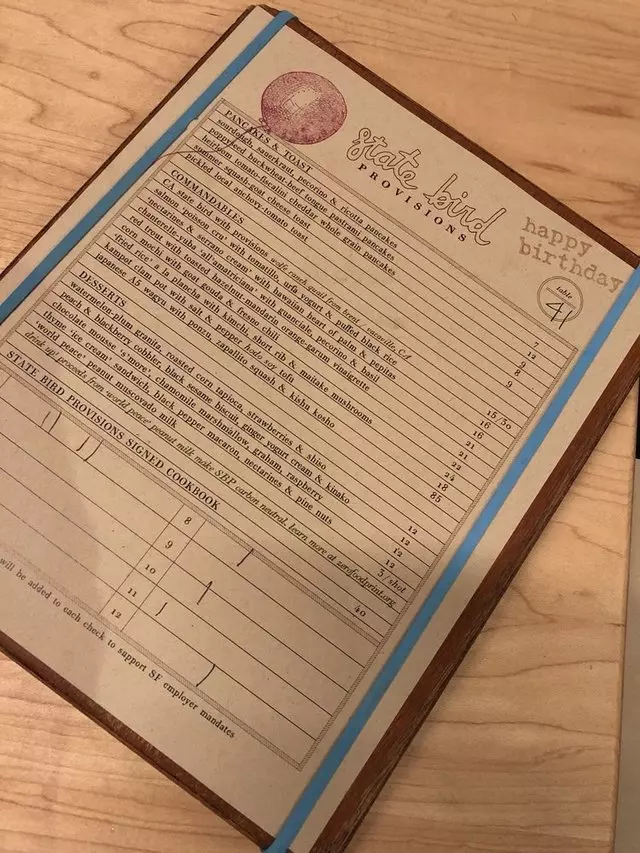 state bird
PROVISIONS
happy
birthday
table
41
PANCAKES & TOAST
sourdough, sauerkraut, pecorino & ricotta pancakes 7
poppyseed buckwheat-beef tongue pastrami pancakes 12
heirloom tomato-fiscalini cheddar whole grain pancakes 9
summer squash-goat cheese toast 8
pickled local anchovy-tomato toast 9
COMMANDABLES
CA state bird with provisions wolfe ranch quail from brent CA 15/30
salmon 'poisson cru' with tomatillo, urfa yogurt & puffed black rice 16
'nectarines & serrano cream' with hawaiian heart of palm & pepitas 16
chanterelle-yuba 'all'amatriciana' with guanciale, pecorino & basil 21
red trout with toasted hazelnut-mandarin orange-garum vinaigrette 21
corn mochi with goat gouda & fresno chili 22
'fried rice' a la plancha with kimchi, short rib & maitake mushrooms 24
kampot clam pot with salt & pepper hodo soy tofu 18
japanese A5 wagyu with ponzu, zapallito squash & kishu kosho 85
DESSERTS
watermelon-plum granita, roasted corn tapioca, strawberries & shiso 12
peach & blackberry cobbler, black sesame biscuit, ginger yogurt cream & kinako 12
chocolate mousse 's'more', chamomile marshmallow, graham, raspberry 12
thyme 'ice cream' sandwich, black pepper macaron, nectarines & pine nuts 12
'world peace' peanut muscovado milk 3/shot
drink up! proceeds from 'world peace' peanut milk make SBP carbon neutral, learn more at zerofoodprint.org
STATE BIRD PROVISIONS SIGNED COOKBOOK 40
8
9
10
11
12
will be added to each check to support SF employer mandates